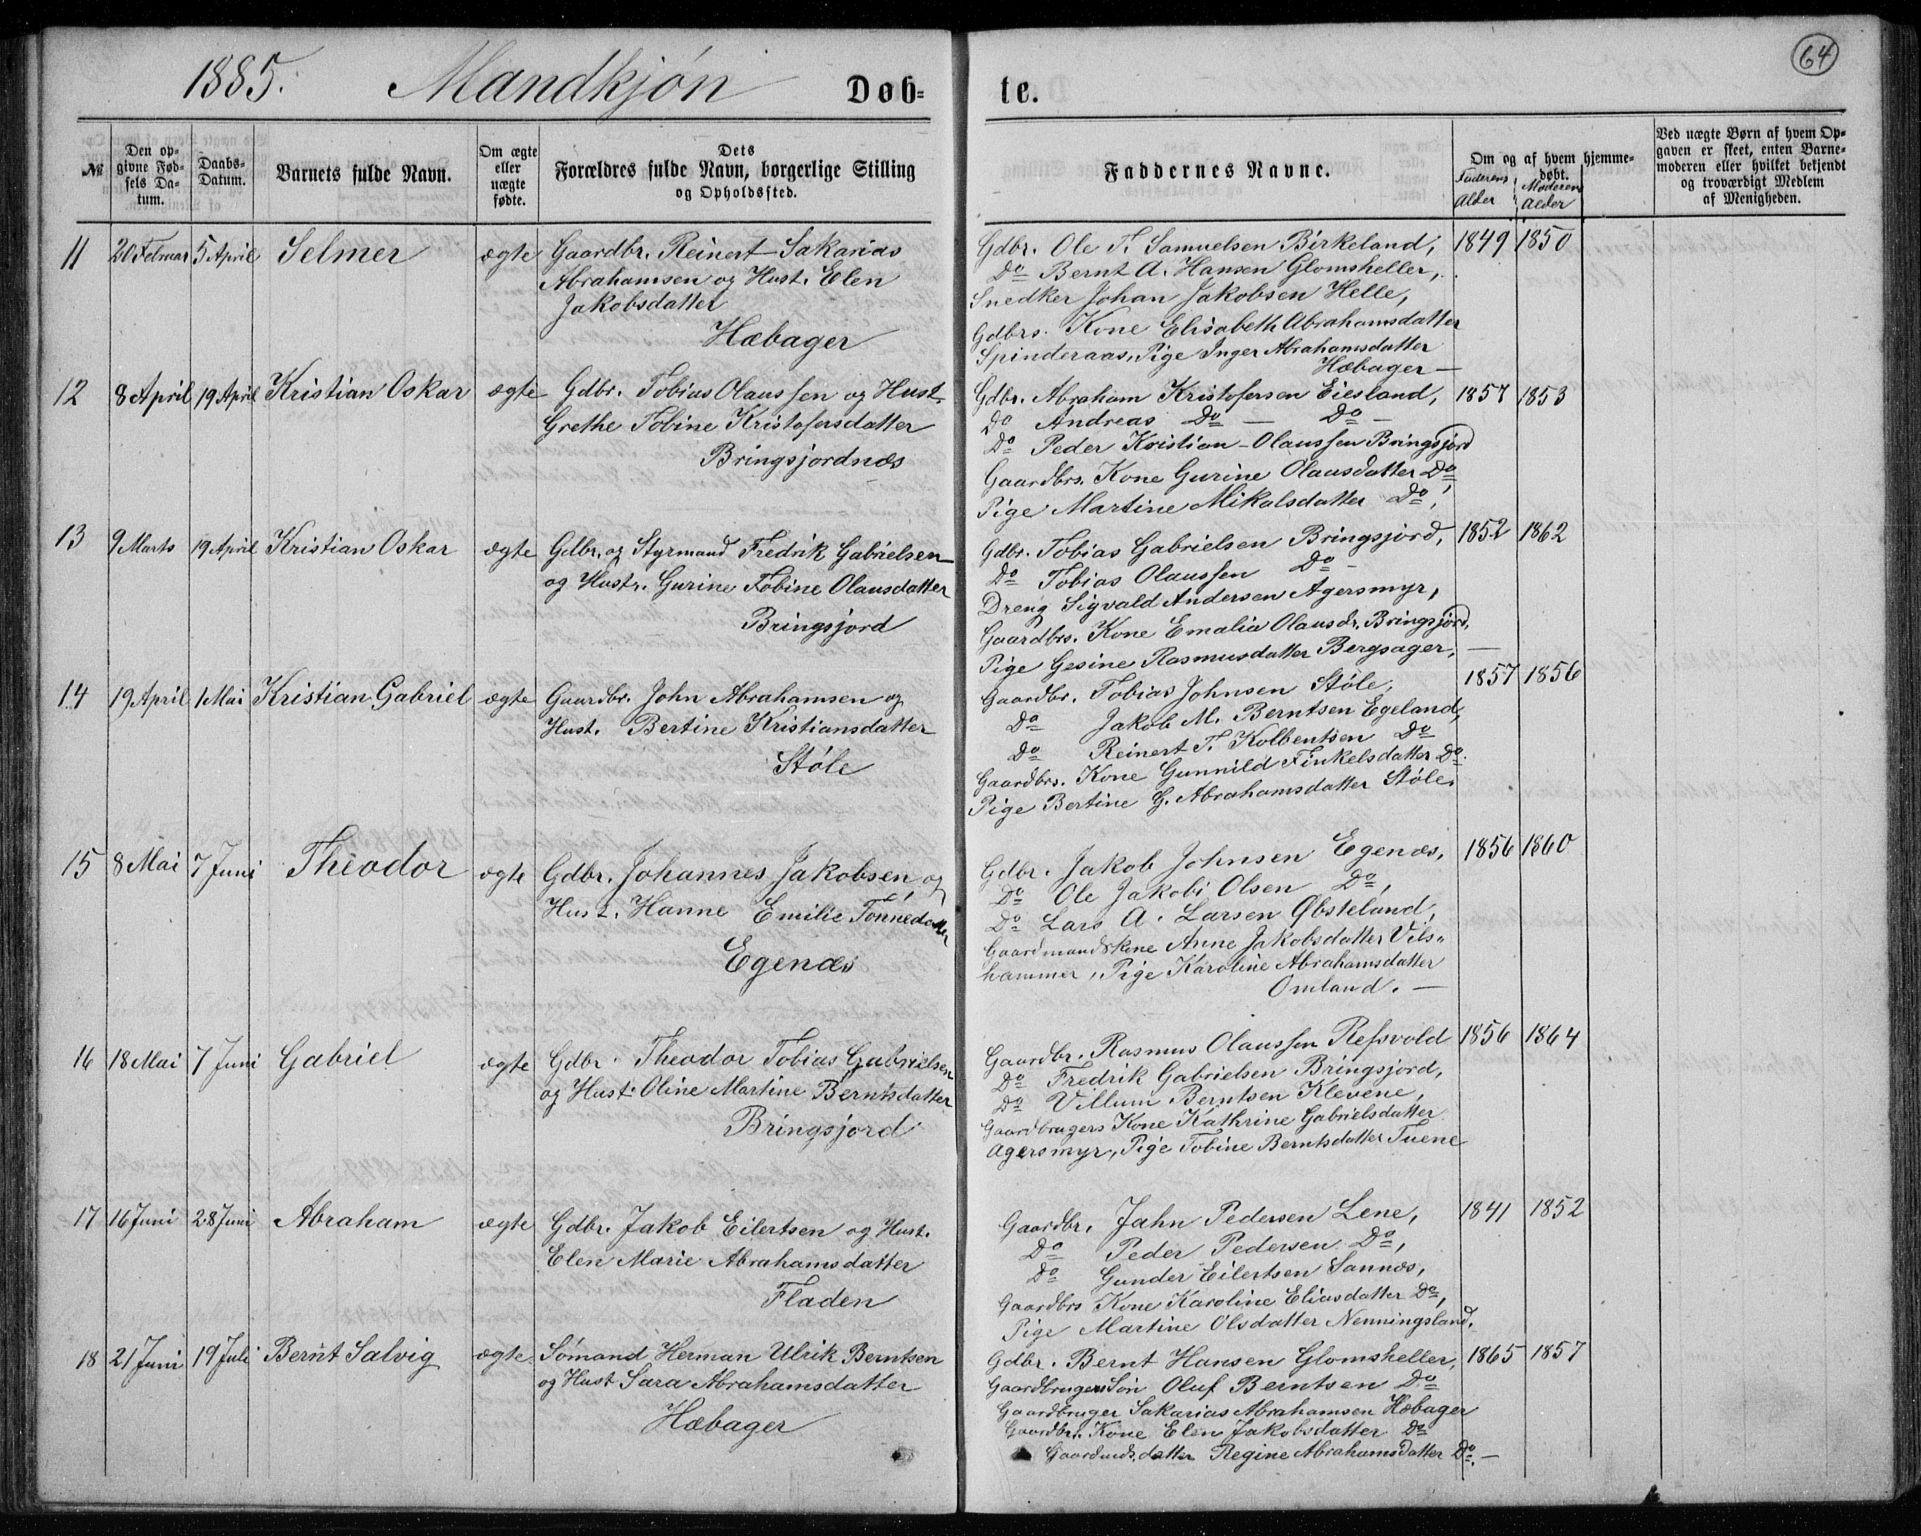 64
1885. Mandkjøn Døb- te.
№
Den op-
givne Fød-
sels Da-
tum.
Daabs-
Datum.
Barnets fulde Navn.
Om ægte
eller
uægte
fødte.
Dets
Forældres fulde Navn, borgerlige Stilling
og Opholdssted.
Faddernes Navne.
Om og af hvem hjemme-
døbt.
Faderens Alder
Moderens Alder
Ved uægte Børn af hvem Op-
gaven er skeet, enten Barne-
moderen eller hvilket bekjendt
og troværdigt Medlem
af Menigheden.
11 20 Februar 5 April Selmer ægte
Gaardbr. Reinert Sakarias
Abrahamsen og Hust. Elen
Jakobsdatter
Hæbager
Gdbr. Ole T. Samuelsen Birkeland, 1849 1850
Do Bernt A. Hansen Glomsheller,
Snedker Johan Jakobsen Helle,
Gdbrs. Kone Elisabeth Abrahamsdatter
Spinderaas, Pige Inger Abrahamsdatter
Hæbager —
12 8 April 19 April Kristian Oskar ægte
Gdbr. Tobias Olaussen og Hust.
Grethe Tobine Kristofersdatter
Bringsjordnæs
Gdbr. Abraham Kristofersen Eiesland, 1857 1853
Do Andreas Do — Do —
Do Peder Kristian Olaussen Bringsjord
Gaardbrs. Kone Gurine Olausdatter Do,
Pige Martine Mikalsdatter Do,
13 9 Marts 19 April Kristian Oskar ægte
Gdbr. og Styrmand Fredrik Gabrielsen
og Hustr. Gurine Tobine Olausdatter
Bringsjord
Gdbr. Tobias Gabrielsen Bringsjord, 1852 1862
Do Tobias Olaussen Do —
Dreng Sigvald Andersen Agersmyr,
Gaardbrs. Kone Emalia Olausdr. Bringsjord,
Pige Gesine Rasmusdatter Bergsager, —
14 19 April 1 Mai Kristian Gabriel ægte
Gaardbr. John Abrahamsen og
Hust. Bertine Kristiansdatter
Støle
Gaardbr. Tobias Johnsen Støle, 1857 1856
Do Jakob M. Berntsen Egeland,
Do Reinert T. Kolbentsen Do
Gaardbrs. Kone Gunnild Finkelsdatter Do.
Pige Bertine G. Abrahamsdatter Støle.
15 8 Mai 7 Juni Theodor ægte
Gdbr. Johannes Jakobsen og
Hust. Hanne Emilie Tønnedatter
Egenæs
Gdbr. Jakob Johnsen Egenæs, 1856 1860
Do Ole Jakobi Olsen Do,
Do Lars A. Larsen Øbsteland,
Gaardmandskone Anne Jakobsdatter Vils-
hammer, Pige Karoline Abrahamsdatter
Omland. —
16 18 Mai 7 Juni Gabriel ægte
Gdbr. Theodor Tobias Gabrielsen
og Hust. Oline Martine Berntsdatter
Bringsjord
Gaardbr. Rasmus Olaussen Refsvold 1856 1864
Do Fredrik Gabrielsen Bringsjord,
Do Villum Berntsen Klevene,
Gaardbrugers Kone Kathrine Gabrielsdatter
Agersmyr, Pige Tobine Berntsdatter Tuene
17 16 Juni 28 Juni Abraham ægte
Gdbr. Jakob Eilertsen og Hust.
Elen Marie Abrahamsdatter
Fladen
Gaardbr. Jahn Pedersen Lene, 1841 1852
Do Peder Pedersen Do,
Do Gunder Eilertsen Sannæs,
Gaardbrs Kone Karoline Eliasdatter Do,
Pige Martine Olsdatter Nenningsland,
18 21 Juni 19 Juli Bernt Salvig ægte
Sømand Herman Ulrik Berntsen
og Hust Sara Abrahamsdatter
Hæbager
Gdbr. Bernt Hansen Glomsheller, 1865 1857
Gaardbrugers Søn Oluf Berntsen Do
Gaardbruger Sakarias Abrahamsen Hæbager
Gaardbr. Kone Elen Jakobsdatter Do
Gaardmds. datter Regine Abrahamsdatter Do. —